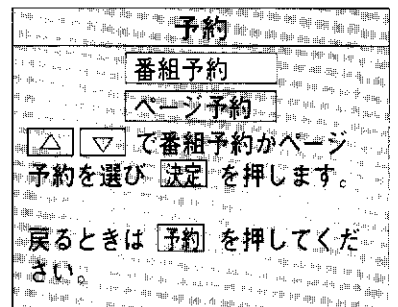 予約
番組予約
ページ予約
△ ▽ で番組予約かページ
予約を選び 決定 を押します。
戻るときは 予約 を押してくだ
さい。